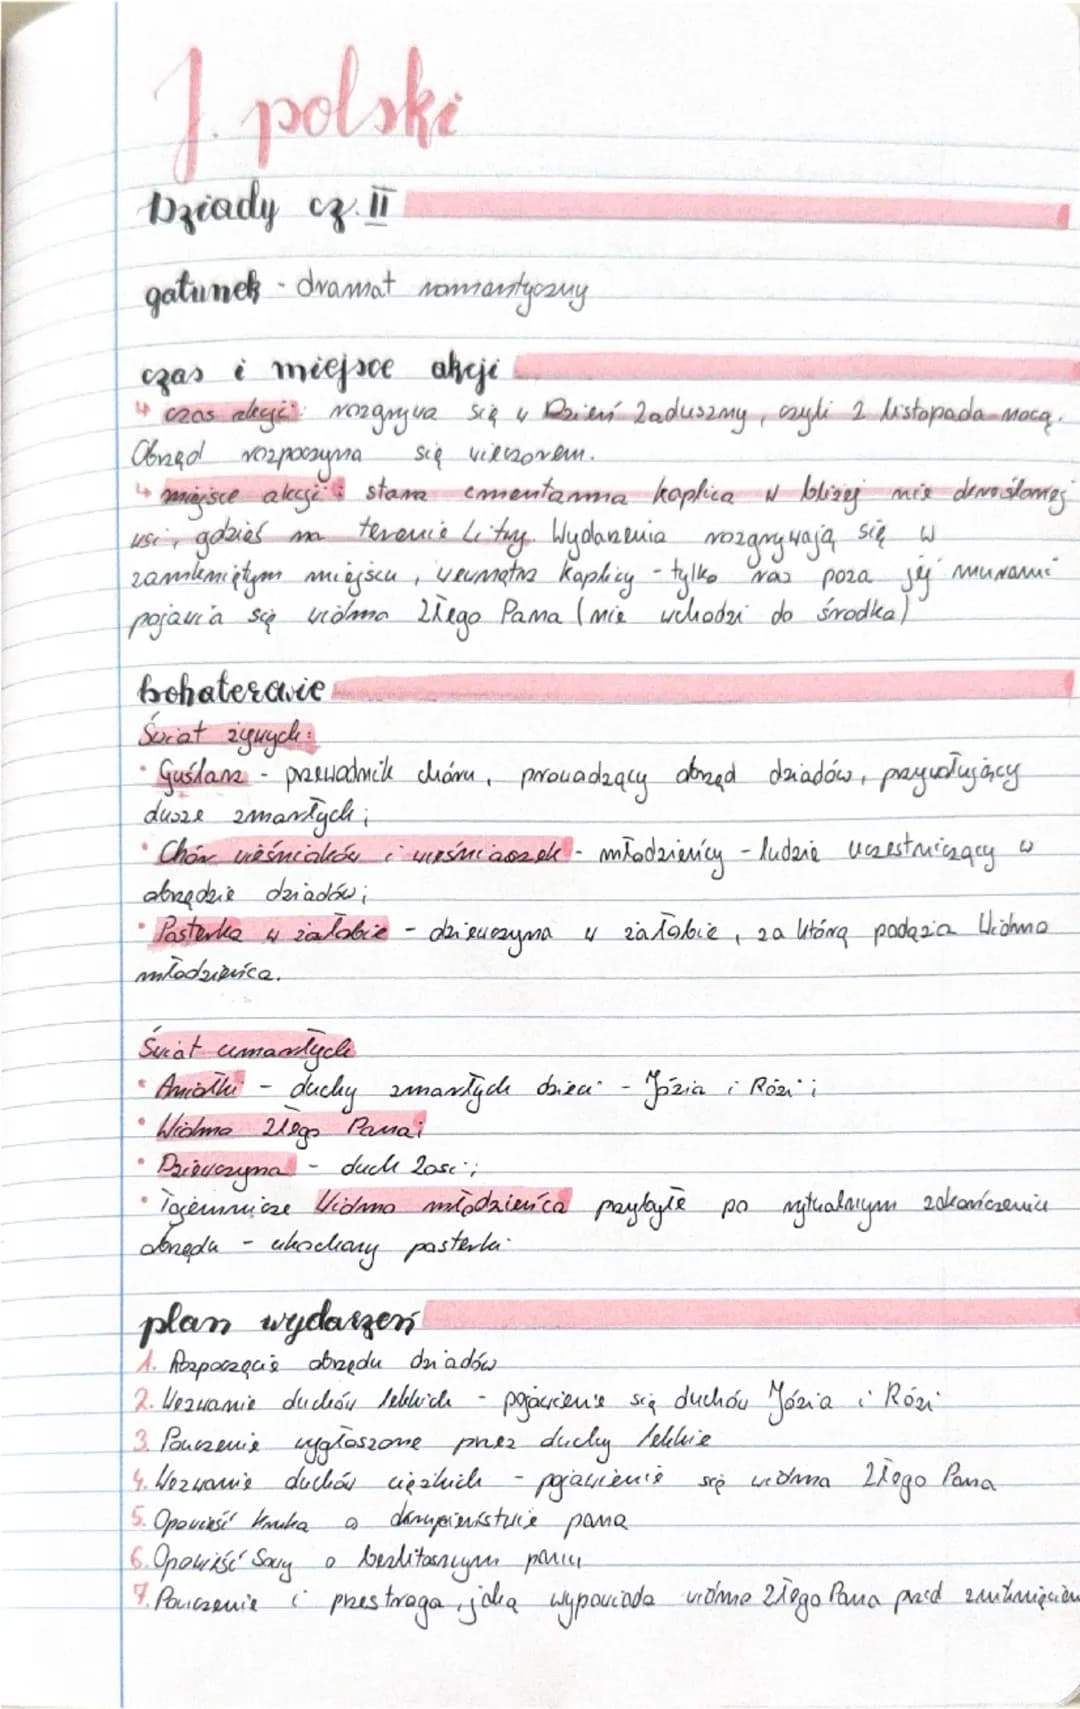 J. polski
Dziady cz. II
gatunek - dramat romantyczny
czas i miejsce akcji
↳ czas akcji: rozgrywa się w Dzień Zaduszny, czyli 2 listopada nocą.
Obrzęd rozpoczyna się wieczorem.
↳ miejsce akcji: stara cmentarna kaplica w bliżej nie określonej
wsi, gdzieś na terenie Litwy. Wydarzenia rozgrywają się w
zamkniętym miejscu, wewnątrz kaplicy - tylko raz poza jej murami
pojawia się widmo Złego Pana (nie wchodzi do środka)
bohaterowie
Świat żywych:
• Guślarz - przewodnik chóru, prowadzący obrzęd dziadów, przywołujący
dusze zmarłych;
• Chór wieśniaków i wieśniaczek - młodzieńcy - ludzie uczestniczący w
obrzędzie dziadów;
• Pasterka w żałobie - dziewczyna w żałobie, za którą podąża Widmo
młodzieńca.
Świat umarłych
• Aniołki - duchy zmarłych dzieci - Józia i Rózi;
• Widmo Złego Pana;
• Dziewczyna - duch Zosi;
• Tajemnicze Widmo młodzieńca przybyłe po rytualnym zakończeniu
obrzędu - ukochany pasterki.
plan wydarzeń
1. Rozpoczęcie obrzędu dziadów
2. Wezwanie duchów lekkich - pojawienie się duchów Józia i Rózi
3. Pouczenie wygłoszone przez duchy lekkie
4. Wezwanie duchów ciężkich - pojawienie się widma Złego Pana
5. Opowieść kruka o okrucieństwie pana
6. Opowieść Sowy o bezlitosnym panu
7. Pouczenie i przestroga, jaką wypowiada widmo Złego Pana przed zniknięciem